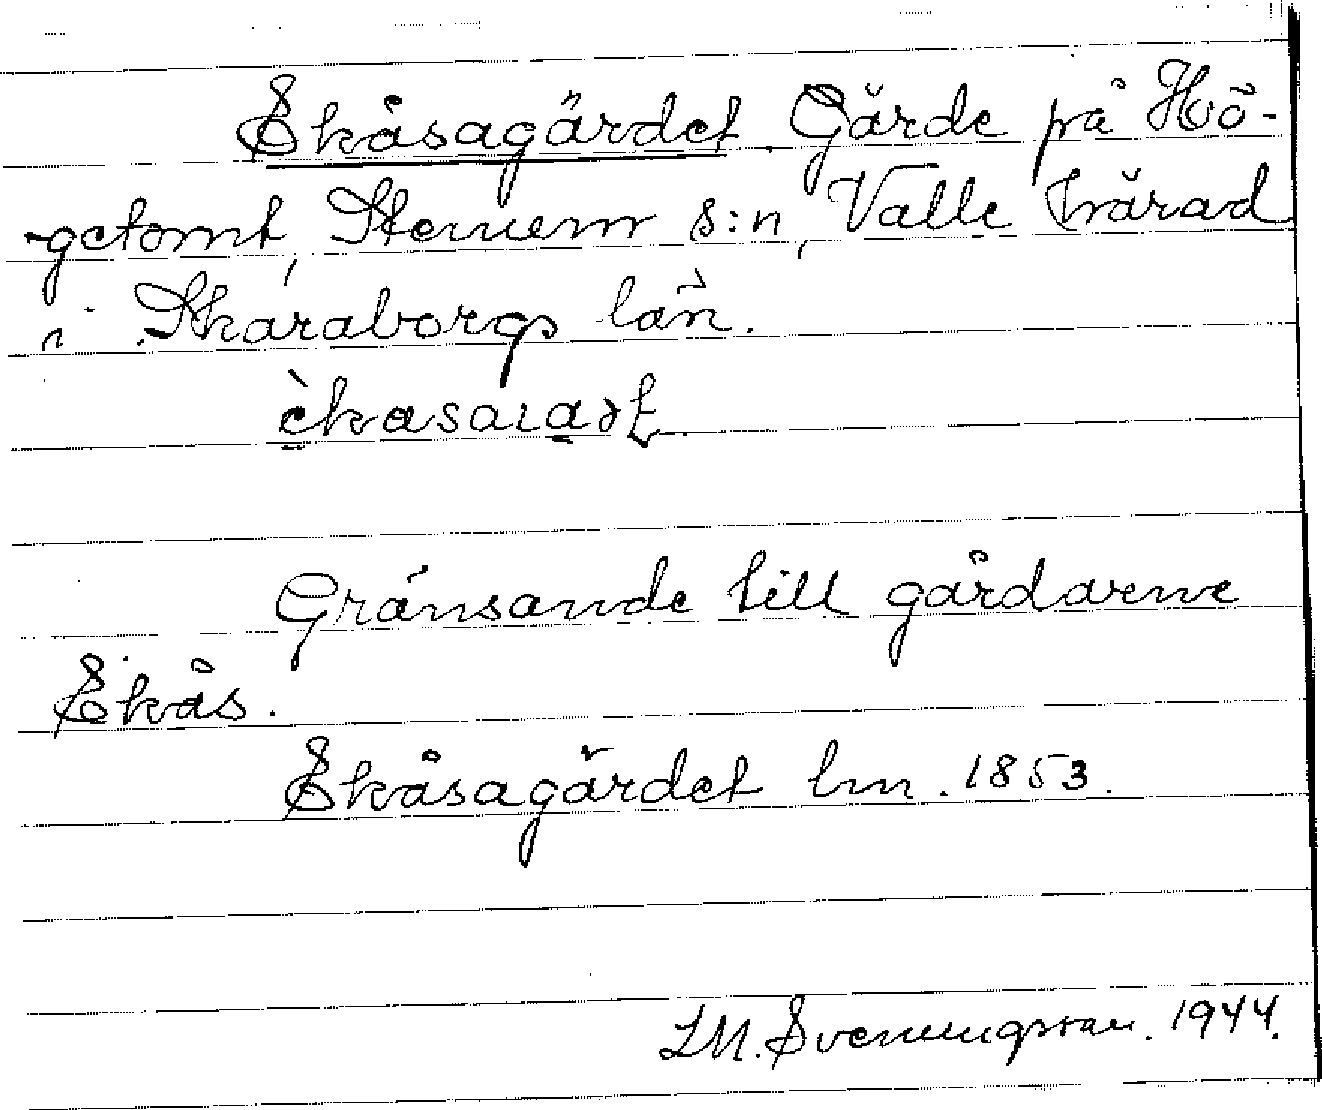 Ekåsagärdet. Gärde på Hö-
-getomt, Stenum s:n, Valle härad
i Skaraborgs län.
Gränsande till gårdarne
Ekås.
Ekåsagärdet lm. 1853.
I.M. Svenungsson. 1944.